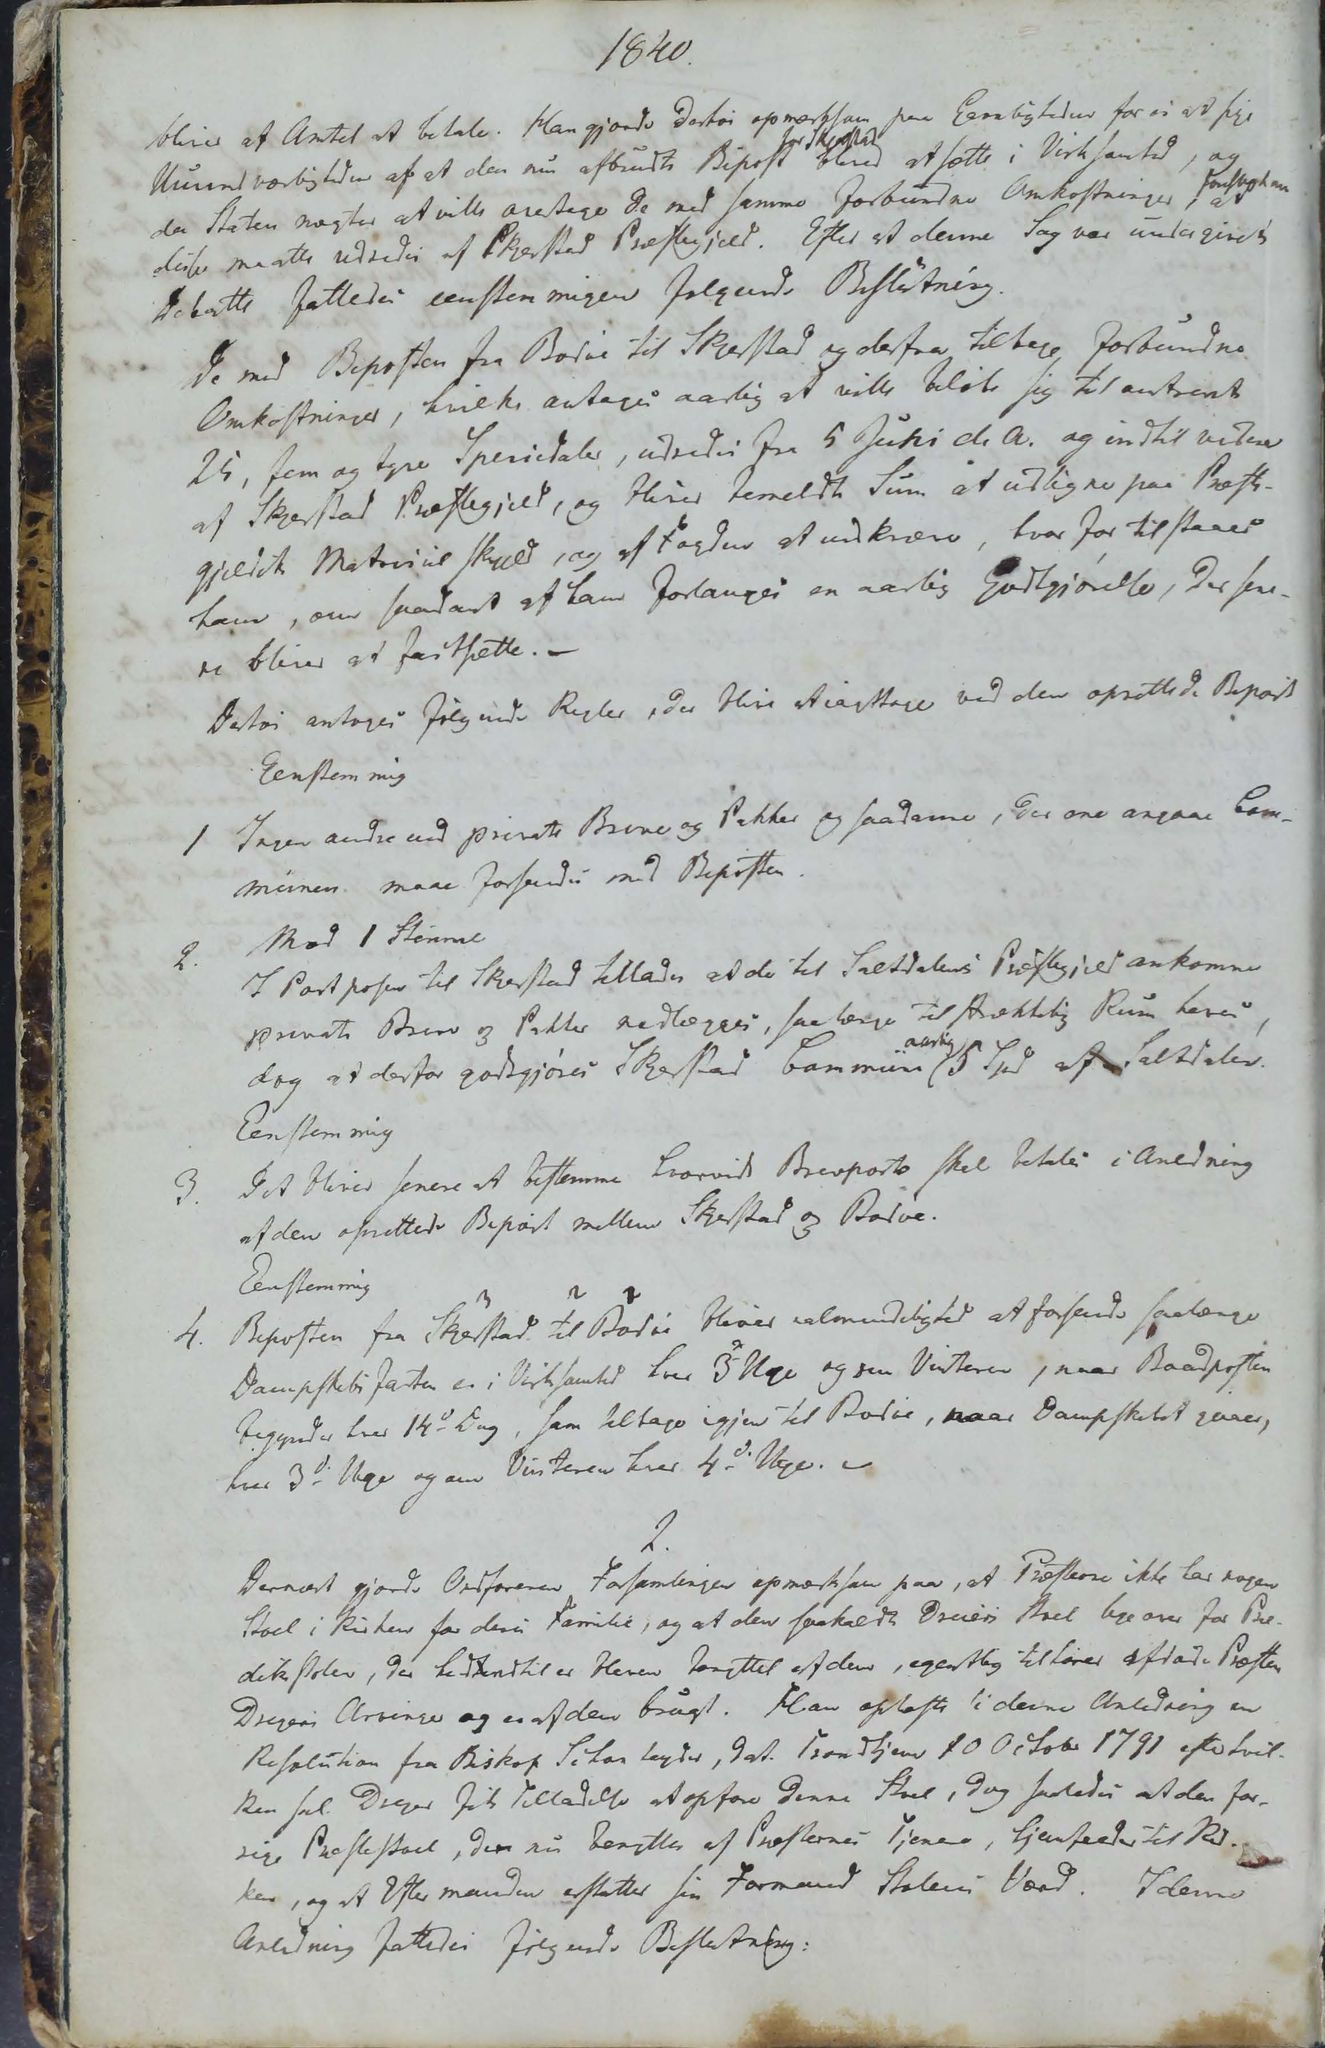 1840.
bliver at Amtet at betale. Han gjorde derhos opmærksom paa Gavnligheden for ei at sige
Uundværligheden af at den nu afbrudte Bipost for Skjerstad bliver at sætte i Virksomhed, og
da Staten nægter at ville overtage de med samme forbundne Omkostninger, foresloges at
disse maatte udredes af Skjerstad Præstegjeld. Efter at denne Sag var undergivet
Debatte fattedes eenstemmigen følgende Beslutning.
De med Biposten fra Bodøe til Skjerstad og derfra tilbage forbundne
Omkostninger, hvilke antages aarlig at ville beløbe sig til omtrent
25, fem og tyve Speciedaler, udredes fra 5 Juni d. A. og indtil videre
af Skjerstad Præstegjeld, og bliver bemeldte Sum at udligne paa Præste-
gjeldets Matriculskyld, og af Fogden at indkræve, hvorfor tilstaaes
ham, om saadant af ham forlanges en aarlig Godtgjørelse, der sene-
re bliver at fastsætte. -
Derhos antages følgende Regler, der blive at iagttage ved den oprettede Bipost
Eenstemmig
1 Ingen andre end private Breve og Pakker og saadanne, der ene angaae Com-
münen maae forsendes med Biposten.
Mod 1 Stemme
2. I Postposen til Skjerstad tillades at de til Saltdalens Præstegjeld ankomne
private Breve og Pakker nedlægges, saa længe tilstrækkelig Rum haves,
dog at derfor godtgjøres Skjerstad Commüne aarlig 5 Spd af Saltdalen.
Eenstemmig
3. Det bliver senere at bestemme hvorvidt Brevporto skal betales i Anledning
af den oprettede Bipost mellem Skjerstad og Bodøe.
Eenstemmig
4. Biposten fra Skjerstad til Bodøe bliver ualmindeligviis at forsende saalænge
Dampskibsfarten er i Virksomhed hver 3die Uge og om Vinteren, naar Baadposten
begynder hver 14de Dag, som tilbage igjen til Bodøe, naar Dampskibet gaaer,
hver 3die Uge og om Vinteren hver 4de Uge. -
2.
Dernæst gjorde Ordføreren Forsamlingen opmærksom paa, at Præsterne ikke har nogen
Stoel i Kirken for deres Familie, og at den saakaldte Dreiers Stoel lige over for Præ-
dikestolen, der hidindtil er bleven benyttet af dem, egentlig tilhører afdøde Præsten
Dreyers Arvinge og er af dem brugt. Han oplæste i denne Anledning en
Resolution fra Biskop Schønheyder, dat. Trondhjem 10 October 1791 efter hvil-
ken sal. Dreyer fik Tilladelse at opføre denne Stoel, dog saaledes at den for-
rige Præstestoel, der nu benyttes af Præsternes Tjenere, hjemfalder til Kir-
ken, og at Eftermanden erstatter sin Formand Stolens Værd. I denne
Anledning fattedes følgende Beslutning: